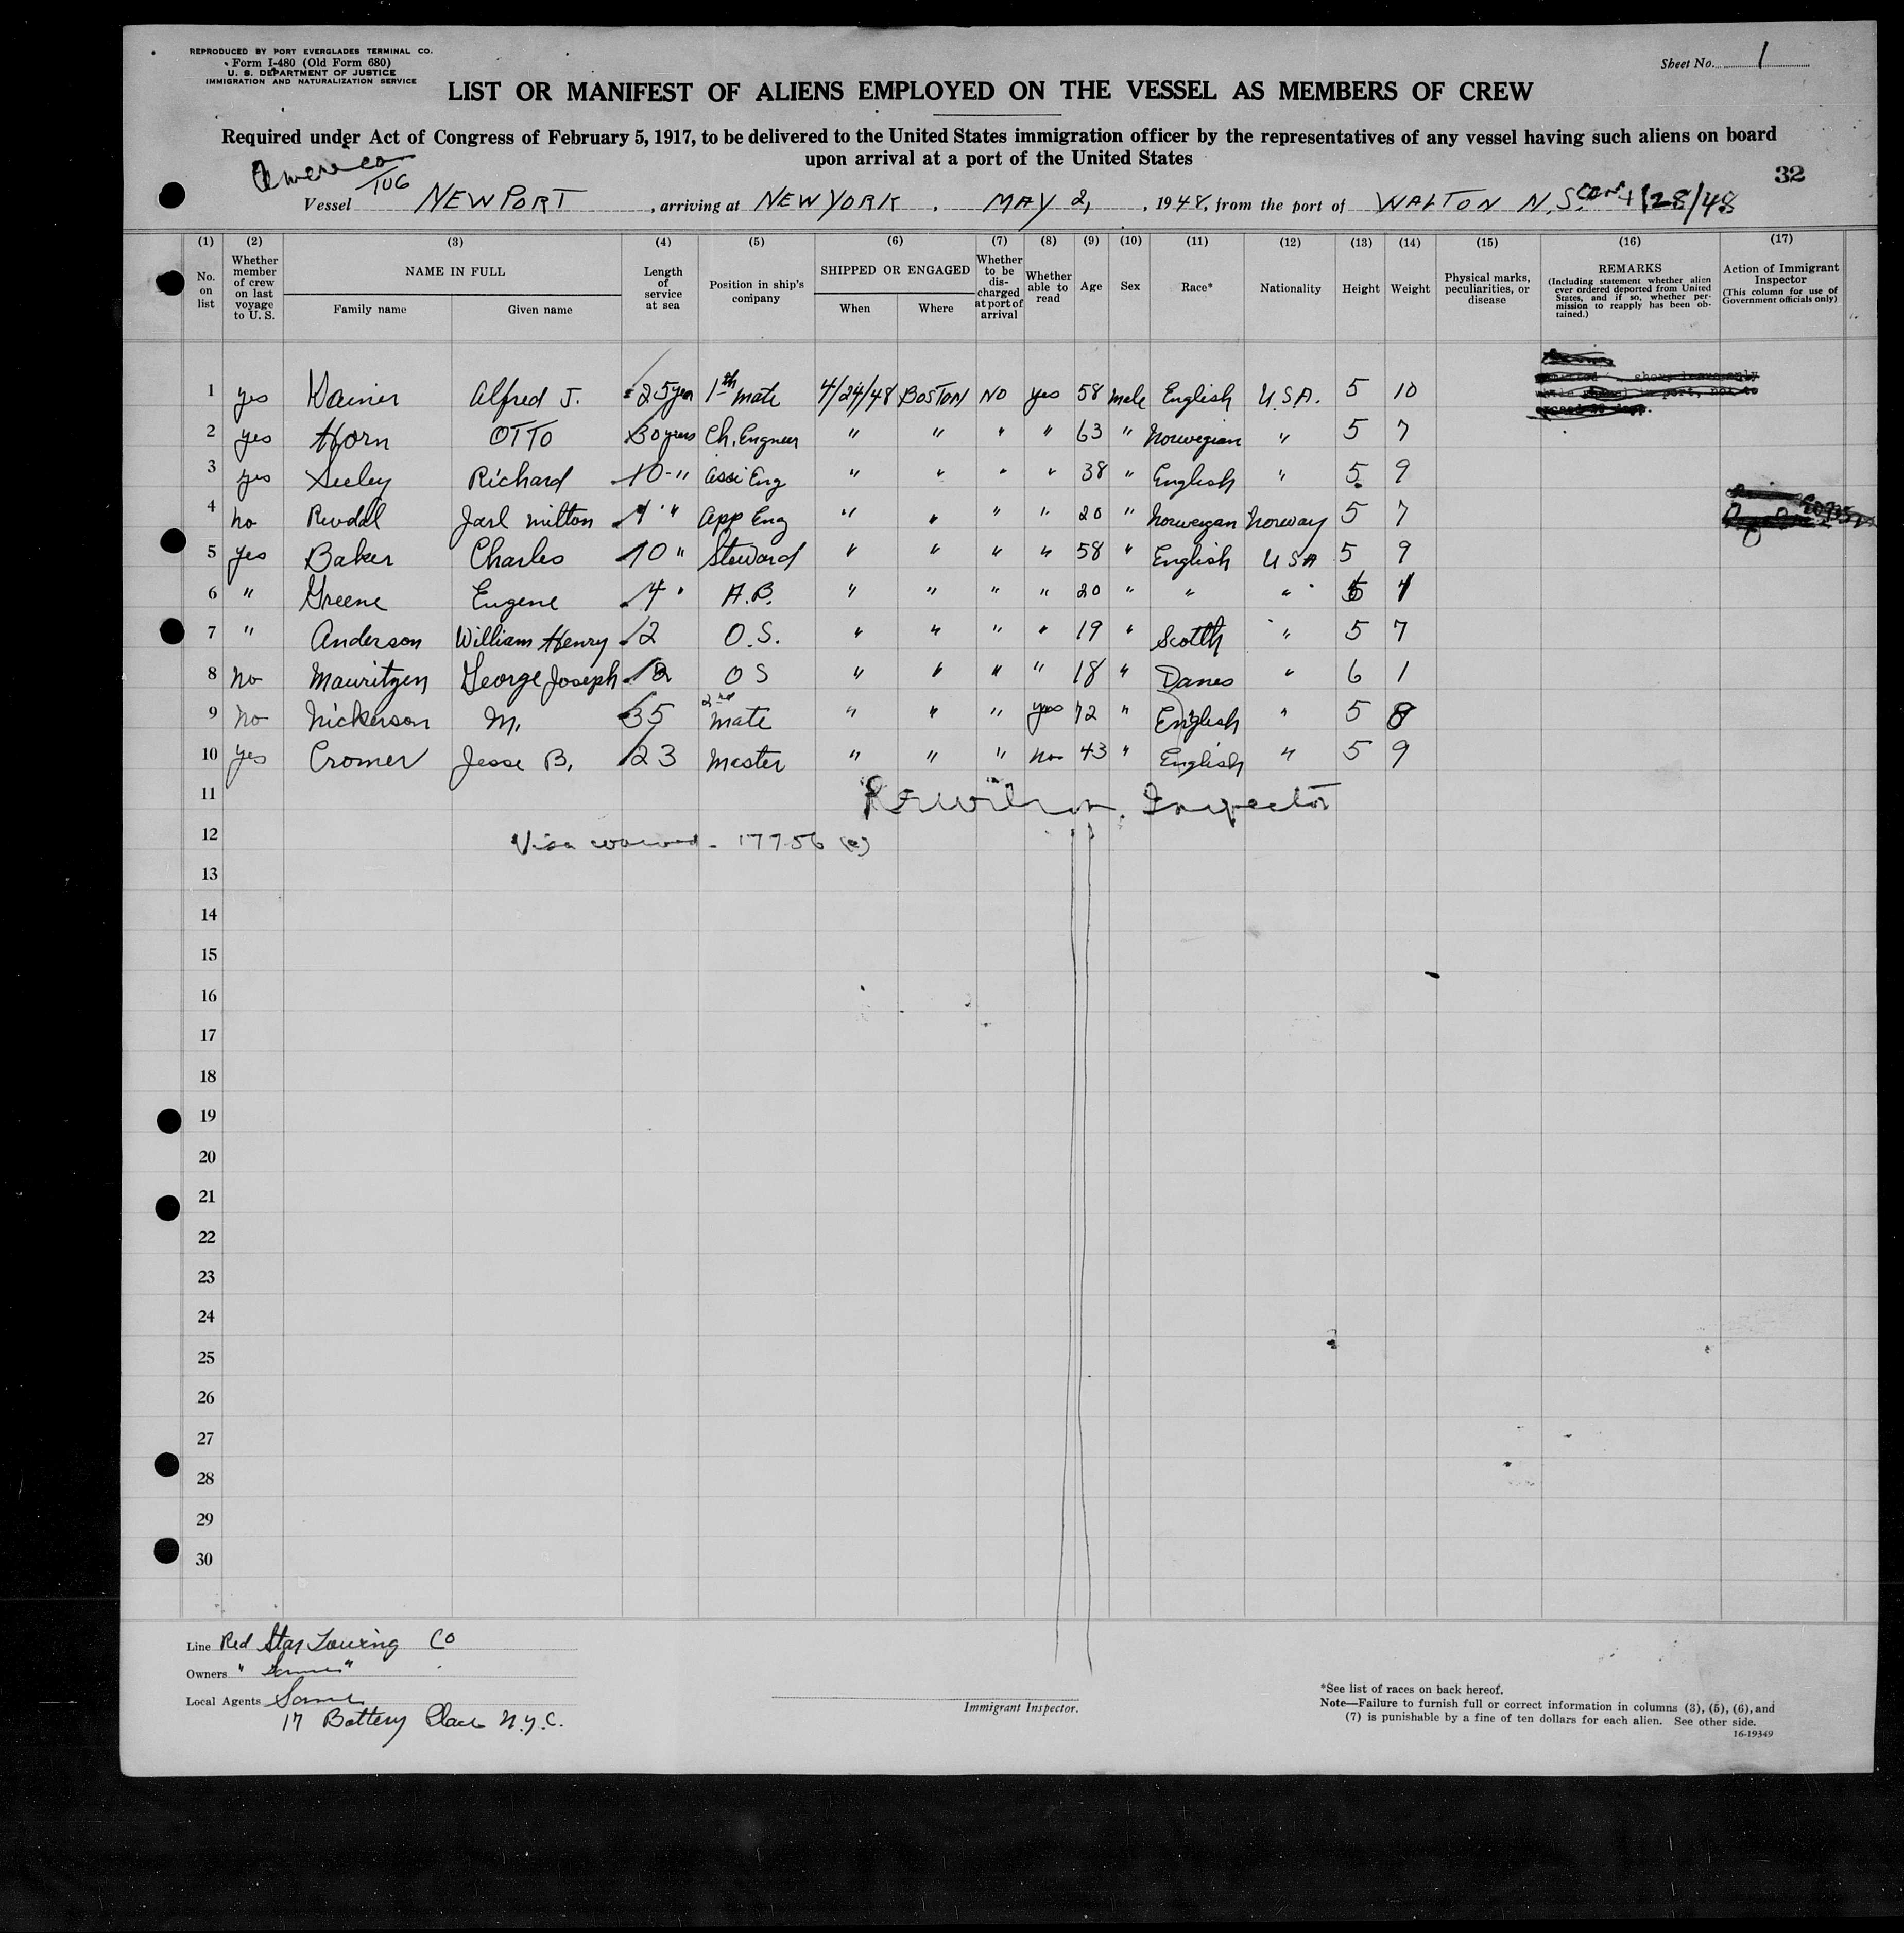 REPRODUCED BY PORT EVERGLADES TERMINAL CO.
Form I-480 (Old Form 680)
U. S. DEPARTMENT OF JUSTICE
IMMIGRATION AND NATURALIZATION SERVICE
Sheet No. 1
LIST OR MANIFEST OF ALIENS EMPLOYED ON THE VESSEL AS MEMBERS OF CREW
Required under Act of Congress of February 5, 1917, to be delivered to the United States immigration officer by the representatives of any vessel having such aliens on board
upon arrival at a port of the United States
32
American
TUG
Vessel NEWPORT, arriving at NEW YORK, MAY 2, 1948, from the port of WALTON N.S. 4/28/48
(1) (2) (3) (4) (5) (6) (7) (8) (9) (10) (11) (12) (13) (14) (15) (16) (17)
No. on list
Whether member of crew on last voyage to U. S.
NAME IN FULL
Family name
Given name
Length of service at sea
Position in ship's company
SHIPPED OR ENGAGED
When
Where
Whether to be discharged at port of arrival
Whether able to read
Age
Sex
Race*
Nationality
Height
Weight
Physical marks, peculiarities, or disease
REMARKS
(Including statement whether alien ever ordered deported from United States, and if so, whether permission to reapply has been obtained.)
Action of Immigrant Inspector
(This column for use of Government officials only)
1 yes Alfred J. 25 yen 1th mate 4/24/48 BOSTON NO yes 58 male English U.S.A. 5 10
2 yes Horn OTTO 30 years Ch. Engneer " " " " 63 " Norwegian " 5 7
3 yes Seeley Richard 10 " assi Eng " " " " 38 " English " 5 9
4 no Jarl milton 1 " app Eng " " " " 20 " Norwegan Norway 5 7
5 yes Baker Charles 10 " Steward " " " " 58 " English USA 5 9
6 " Greene Eugene 4 " A.B. " " " " 20 " " "
7 " Anderson William Henry 2 O.S. " " " " 19 " Scotth " 5 7
8 no Mauritzen George Joseph OS " " " " 18 " Danes " 6 1
9 no Nickerson M. 35 2nd mate " " " yes 72 " English " 5 8
10 yes Cromer Jesse B. 23 Master " " " no 43 " English " 5 9
11 Inspector
12 Visa waived - 177.56 (e)
13
14
15
16
17
18
19
20
21
22
23
24
25
26
27
28
29
30
Line Red Star Towing Co
Owners " Same "
Local Agents Same
17 Battery Place N.Y.C.
Immigrant Inspector.
*See list of races on back hereof.
Note—Failure to furnish full or correct information in columns (3), (5), (6), and
(7) is punishable by a fine of ten dollars for each alien. See other side.
16-19349